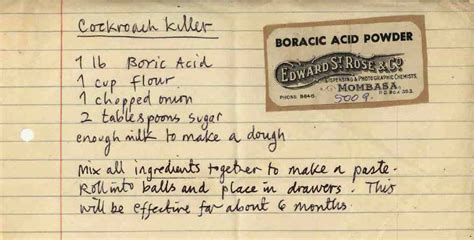 Cockroach Killer
1 lb Boric Acid
1 cup flour
1 chopped onion
2 tablespoons sugar
enough milk to make a dough
Mix all ingredients together to make a paste.
Roll into balls and place in drawers. This
will be effective for about 6 months.
BORACIC ACID POWDER
EDWARD ST. ROSE & CO.
DISPENSING & PHOTOGRAPHIC CHEMISTS,
MOMBASA.
PHONE
P.O. BOX 353.
500 g.